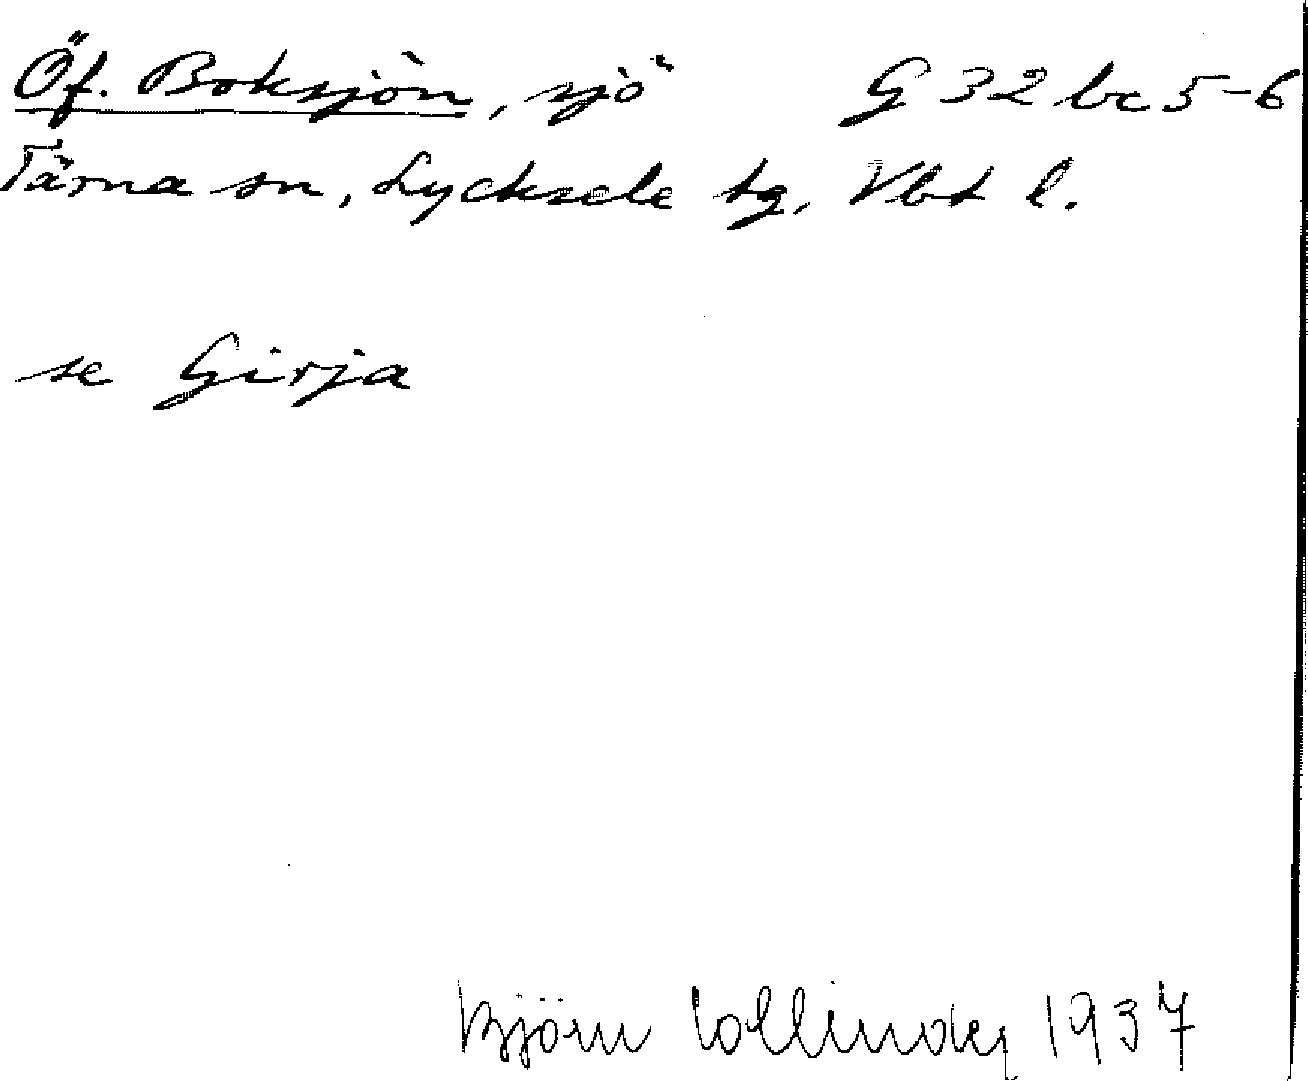 Öf. Boksjön, sjö G 32 bc 5-6
Tärna sn, Lycksele tg, Vbt l.
se Girja
Björn Collinder 1937